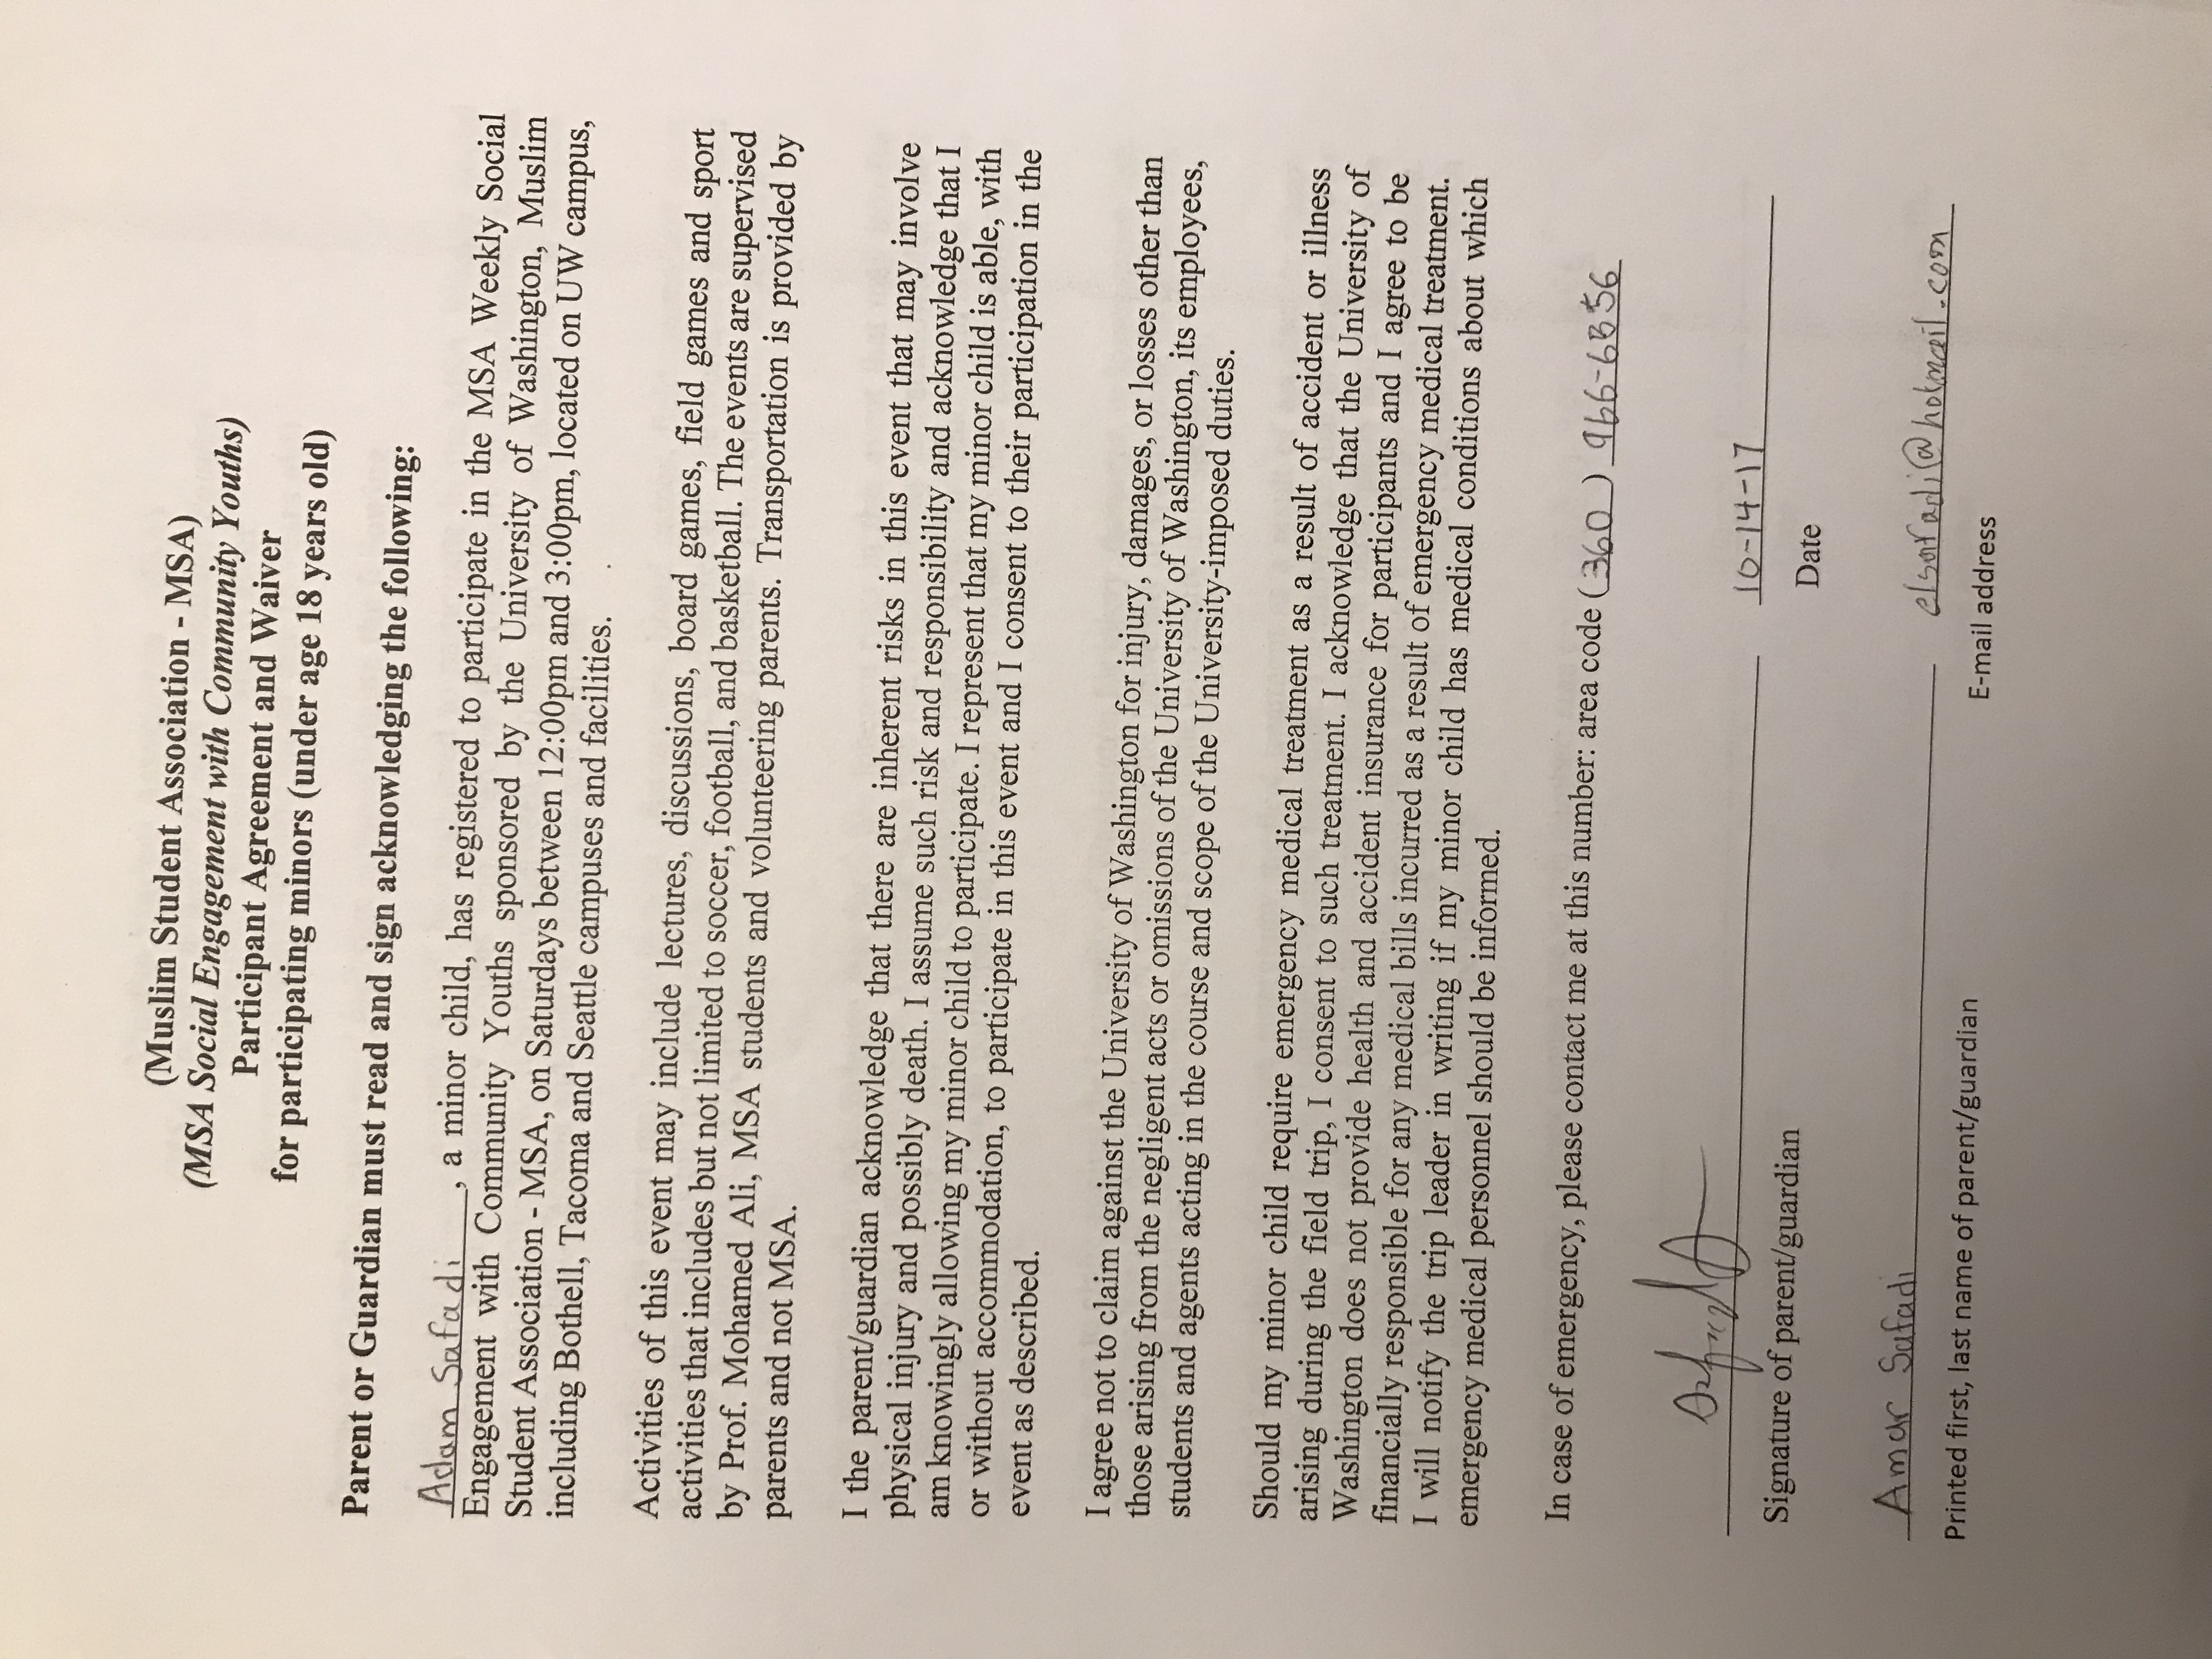 (Muslim Student Association - MSA)
(MSA Social Engagement with Community Youths)
Participant Agreement and Waiver
for participating minors (under age 18 years old)
Parent or Guardian must read and sign acknowledging the following:
Adam Safadi, a minor child, has registered to participate in the MSA Weekly Social
Engagement with Community Youths sponsored by the University of Washington, Muslim
Student Association - MSA, on Saturdays between 12:00pm and 3:00pm, located on UW campus,
including Bothell, Tacoma and Seattle campuses and facilities.
Activities of this event may include lectures, discussions, board games, field games and sport
activities that includes but not limited to soccer, football, and basketball. The events are supervised
by Prof. Mohamed Ali, MSA students and volunteering parents. Transportation is provided by
parents and not MSA.
I the parent/guardian acknowledge that there are inherent risks in this event that may involve
physical injury and possibly death. I assume such risk and responsibility and acknowledge that I
am knowingly allowing my minor child to participate. I represent that my minor child is able, with
or without accommodation, to participate in this event and I consent to their participation in the
event as described.
I agree not to claim against the University of Washington for injury, damages, or losses other than
those arising from the negligent acts or omissions of the University of Washington, its employees,
students and agents acting in the course and scope of the University-imposed duties.
Should my minor child require emergency medical treatment as a result of accident or illness
arising during the field trip, I consent to such treatment. I acknowledge that the University of
Washington does not provide health and accident insurance for participants and I agree to be
financially responsible for any medical bills incurred as a result of emergency medical treatment.
I will notify the trip leader in writing if my minor child has medical conditions about which
emergency medical personnel should be informed.
In case of emergency, please contact me at this number: area code (360)
10-14-17
Signature of parent/guardian
Date
Amar Safadi
Printed first, last name of parent/guardian
E-mail address